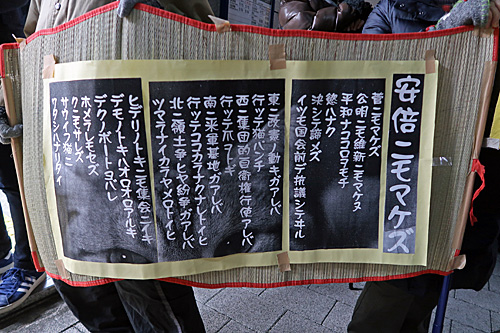 安倍ニモマケズ
菅ニモマケズ
公明ニモ維新ニモマケヌ
平和ナココロヲモチ
慾ハナク
決シテ諦メズ
イツモ国会前デ抗議シテヰル
東ニ改憲ノ動キガアレバ
行ッテ猫パンチ
西ニ集団的自衛権行使アレバ
行ッテホヲヒキ
南ニ米軍基地ガアレバ
行ッテココカラナクナレトイヒ
北ニ領土争ヒヤ紛争ガアレバ
ツマラナイカラヤメロトイヒ
ヒデリノトキニモ集会ニイキ
デモノトキハオロオロアルキ
デクノボートヨバレ
ホメラレモセズ
クニモサレズ
サウイフ猫ニ
ワタシハナリタイ